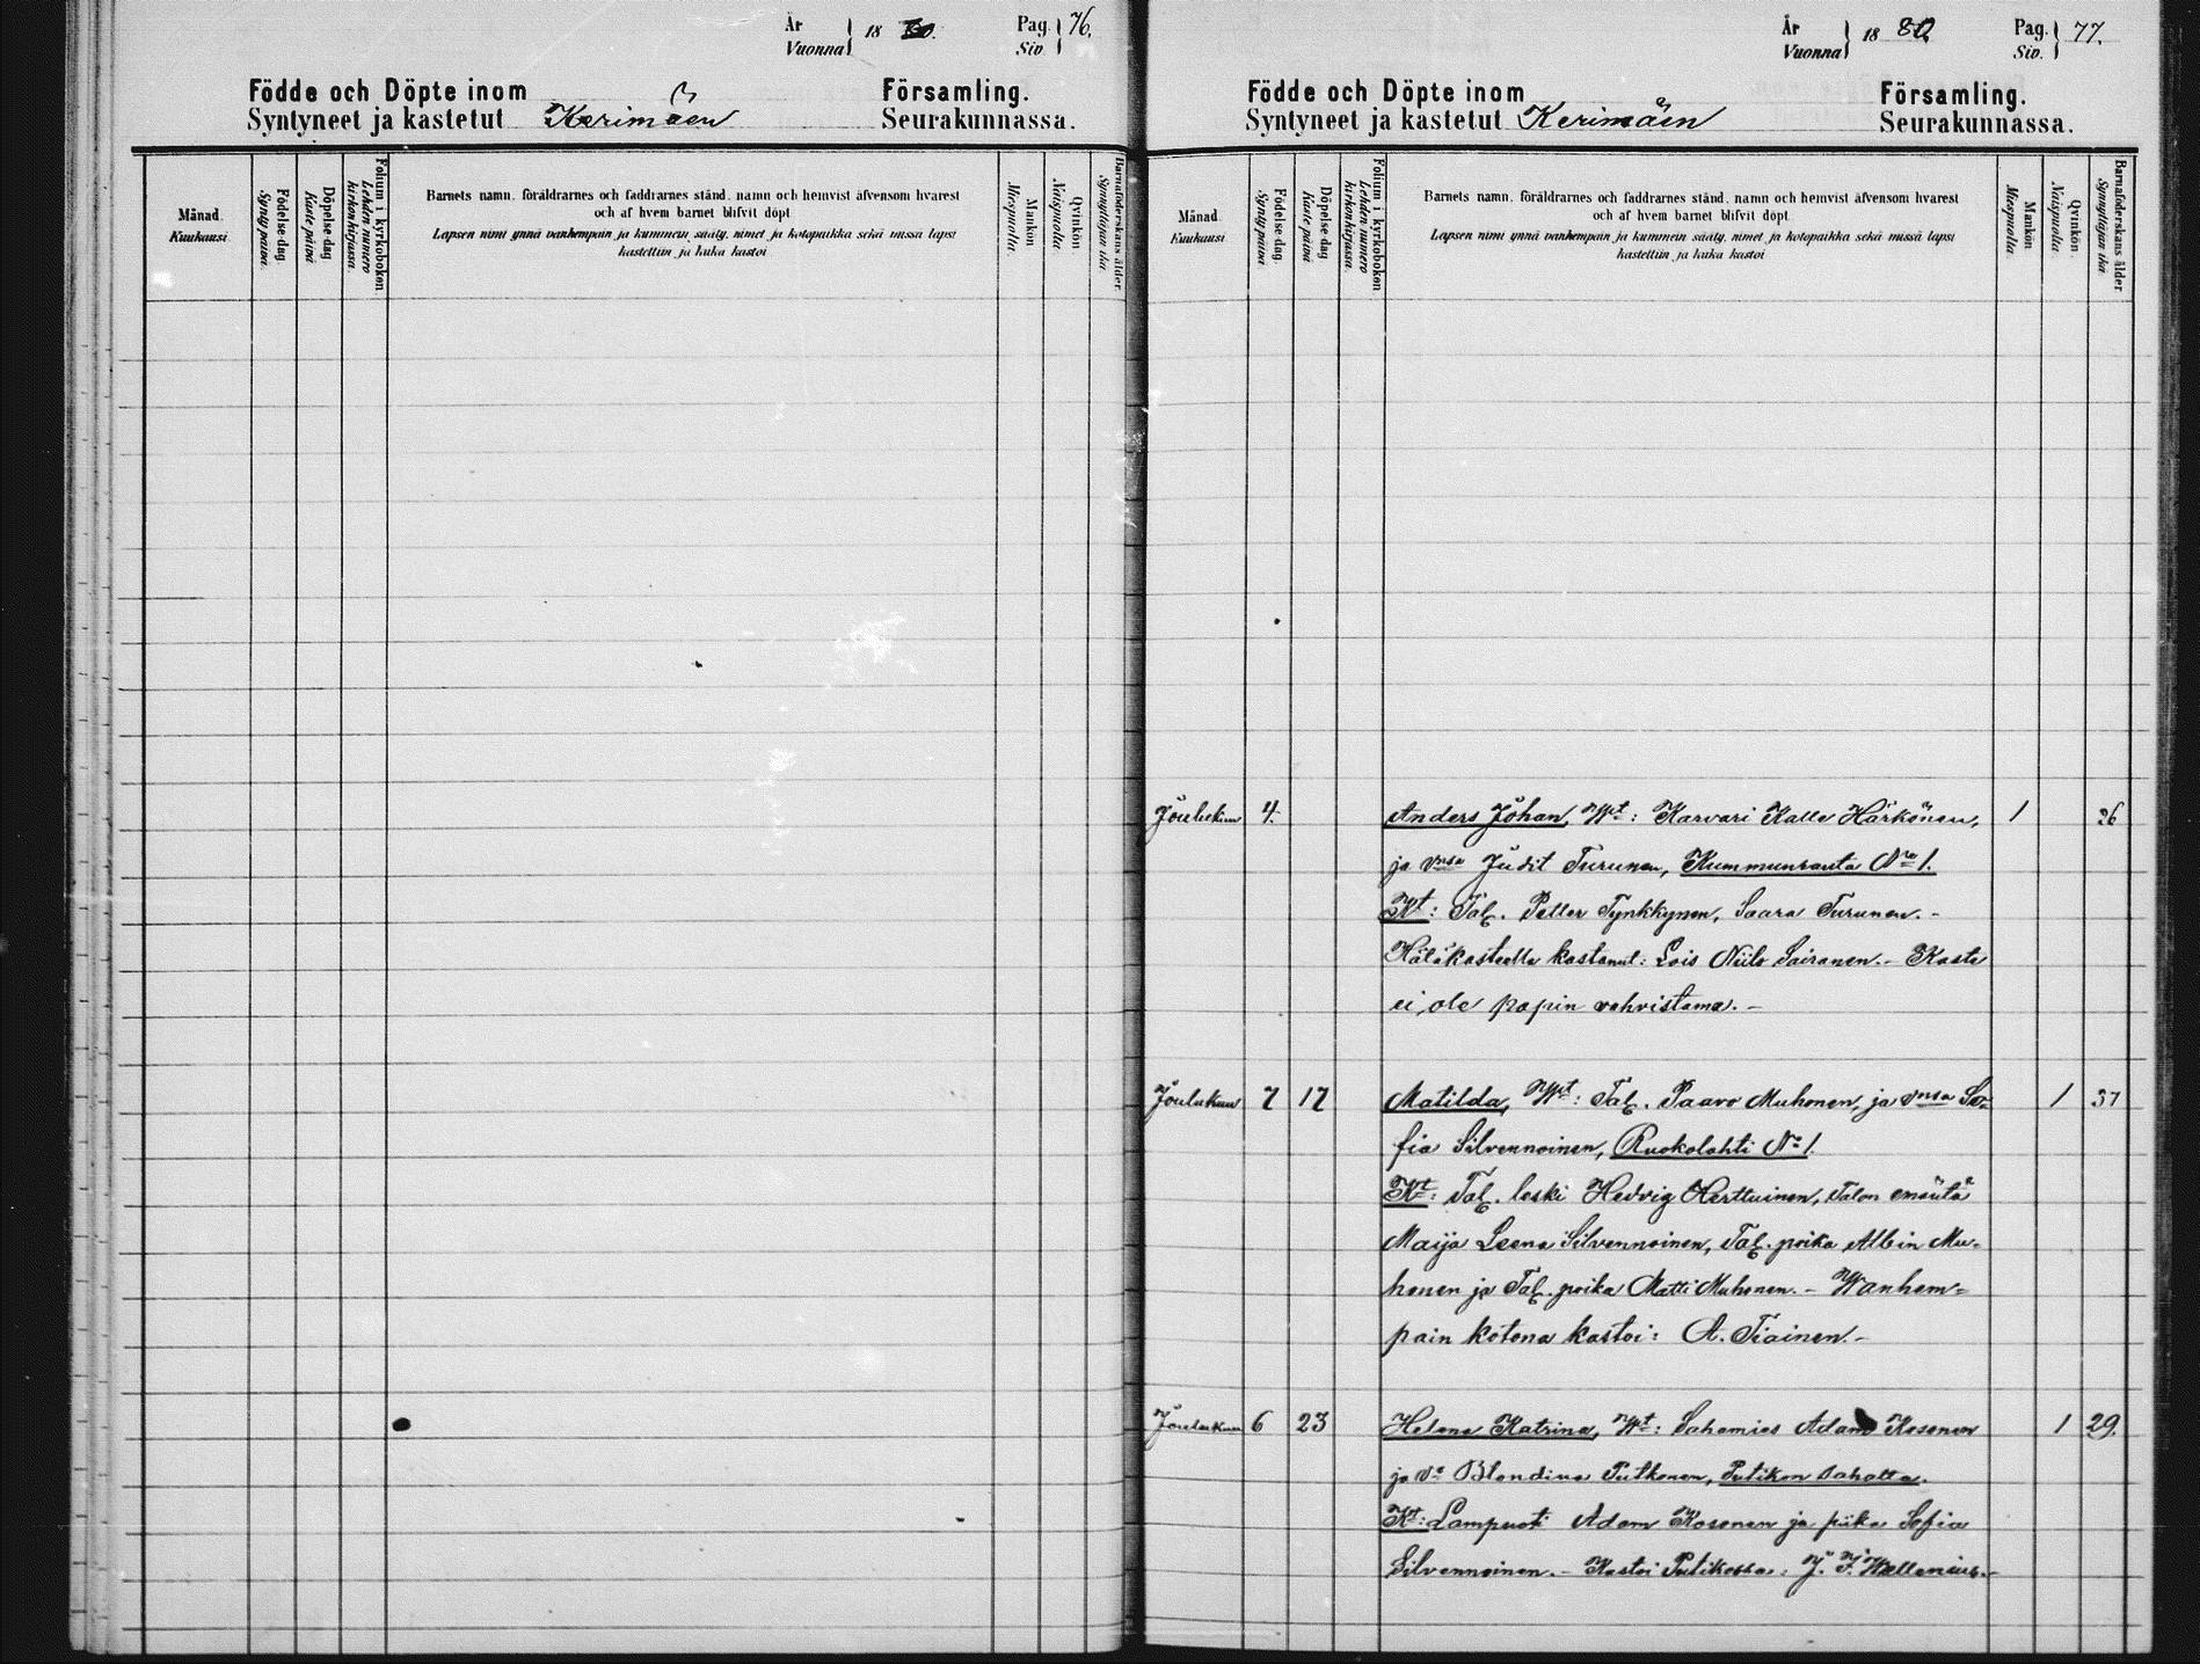 År
Vuonna 18 80. Pag. Siv. 76.
Födde och Döpte inom
Syntyneet ja kastetut Kerimäen
Församling.
Seurakunnassa.
Månad
Kuukausi
Födelse dag.
Synty päivä.
Döpelse dag
Kaste päivä
Folium i kyrkobokon.
Lehden numero
kirkonkirjassa.
Barnets namn, föräldrarnes och faddrarnes stånd, namn och hemvist äfvensom hvarest
och af hvem barnet blifvit döpt
Lapsen nimi ynnä vanhempain ja kummein sääty, nimet ja kotopaikka sekä missä lapsi
kastettiin ja kuka kastoi
Mankön
Miespuolia.
Qvinkön.
Naispuolia.
Barnaföderskans ålder.
Synnyttäjän ikä.
År
Vuonna 18 80. Pag. Siv. 77.
Födde och Döpte inom
Syntyneet ja kastetut Kerimäen
Församling.
Seurakunnassa.
Månad
Kuukausi
Födelse dag.
Synty päivä
Döpelse dag
Kaste päivä
Folium i kyrkobokon
Lehden numero
kirkonkirjassa.
Barnets namn, föräldrarnes och faddrarnes stånd, namn och hemvist äfvensom hvarest
och af hvem barnet blifvit döpt
Lapsen nimi ynnä vanhempain ja kummein sääty, nimet ja kotopaikka sekä missä lapsi
kastettiin ja kuka kastoi
Mankön
Miespuolia.
Qvinkön.
Naispuolia.
Barnaföderskans ålder
Synnyttäjän ikä
Joulukuu 4. Anders Johan, Wt: Karvari Kalle Härkönen, 1 26
ja vnsa Judit Turunen, Kummunranta No 1.
Kt: Tal. Petter Tynkkynen, Saara Turunen.-
Hätäkasteella kastanut: Lois Niilo Sairanen.- Kaste
ei ole papin vahvistama.-
Joulukuu 7 17 Matilda, Wt: Tal. Paavo Muhonen, ja vnsa So= 1 37
fia Silvennoinen, Ruokolahti No 1.
Kt: Tal. leski Hedvig Herttuinen, Talon emäntä
Maija Leena Silvennoinen, Tal. poika Albin Mu=
honen ja Tal. poika Matti Muhonen.- Wanhem=
pain kotona kastoi: A. Tiainen.-
Joulukuu 6 23 Helena Katrina, Wt: Sahamies Adam Kosonen 1 29.
ja v. Blondina Putkonen, Putikon sahalta.
Kt: Lampuoti Adam Kosonen ja piika Sofia
Silvennoinen.- Kastoi Putikossa: J. F. Wallenius.-